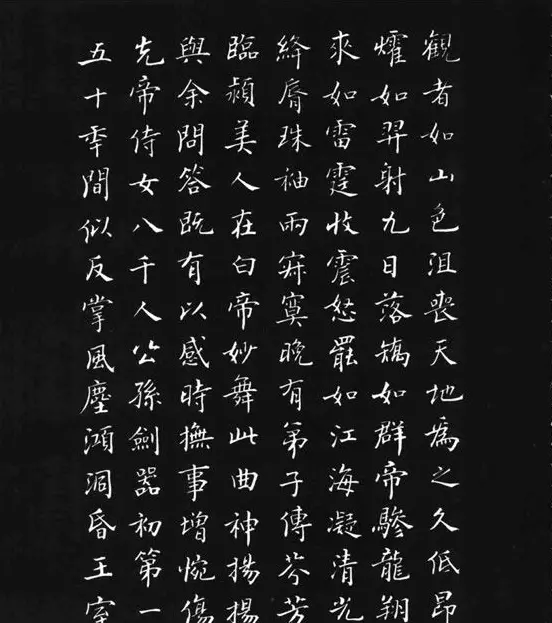 觀者如山色沮喪天地為之久低昂
㸌如羿射九日落矯如群帝驂龍翔
來如雷霆收震怒罷如江海凝清光
絳脣珠袖兩寂寞晚有弟子傳芬芳
臨潁美人在白帝妙舞此曲神揚揚
與余問答既有以感時撫事增惋傷
先帝侍女八千人公孫劍器初第一
五十年間似反掌風塵澒洞昏王室